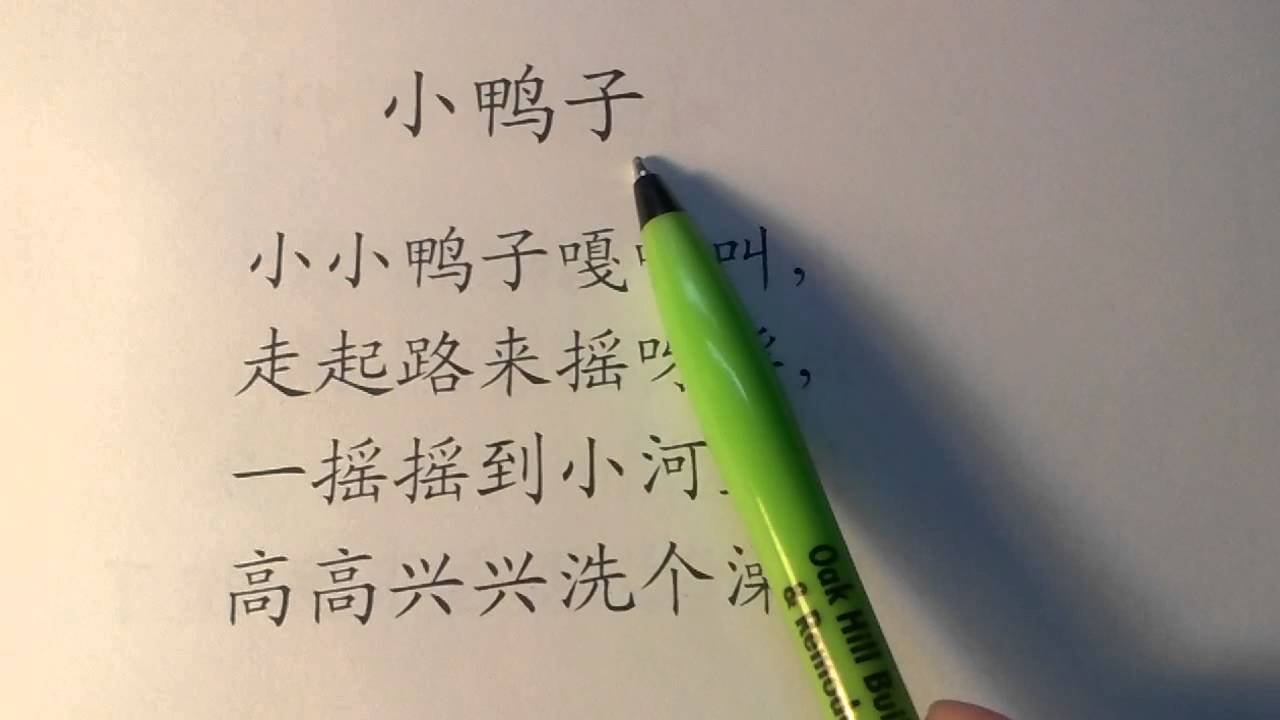 小鸭子
小小鸭子嘎 叫，
走起路来摇呀 ，
一摇摇到小河
高高兴兴洗个澡
Oak Hill
&